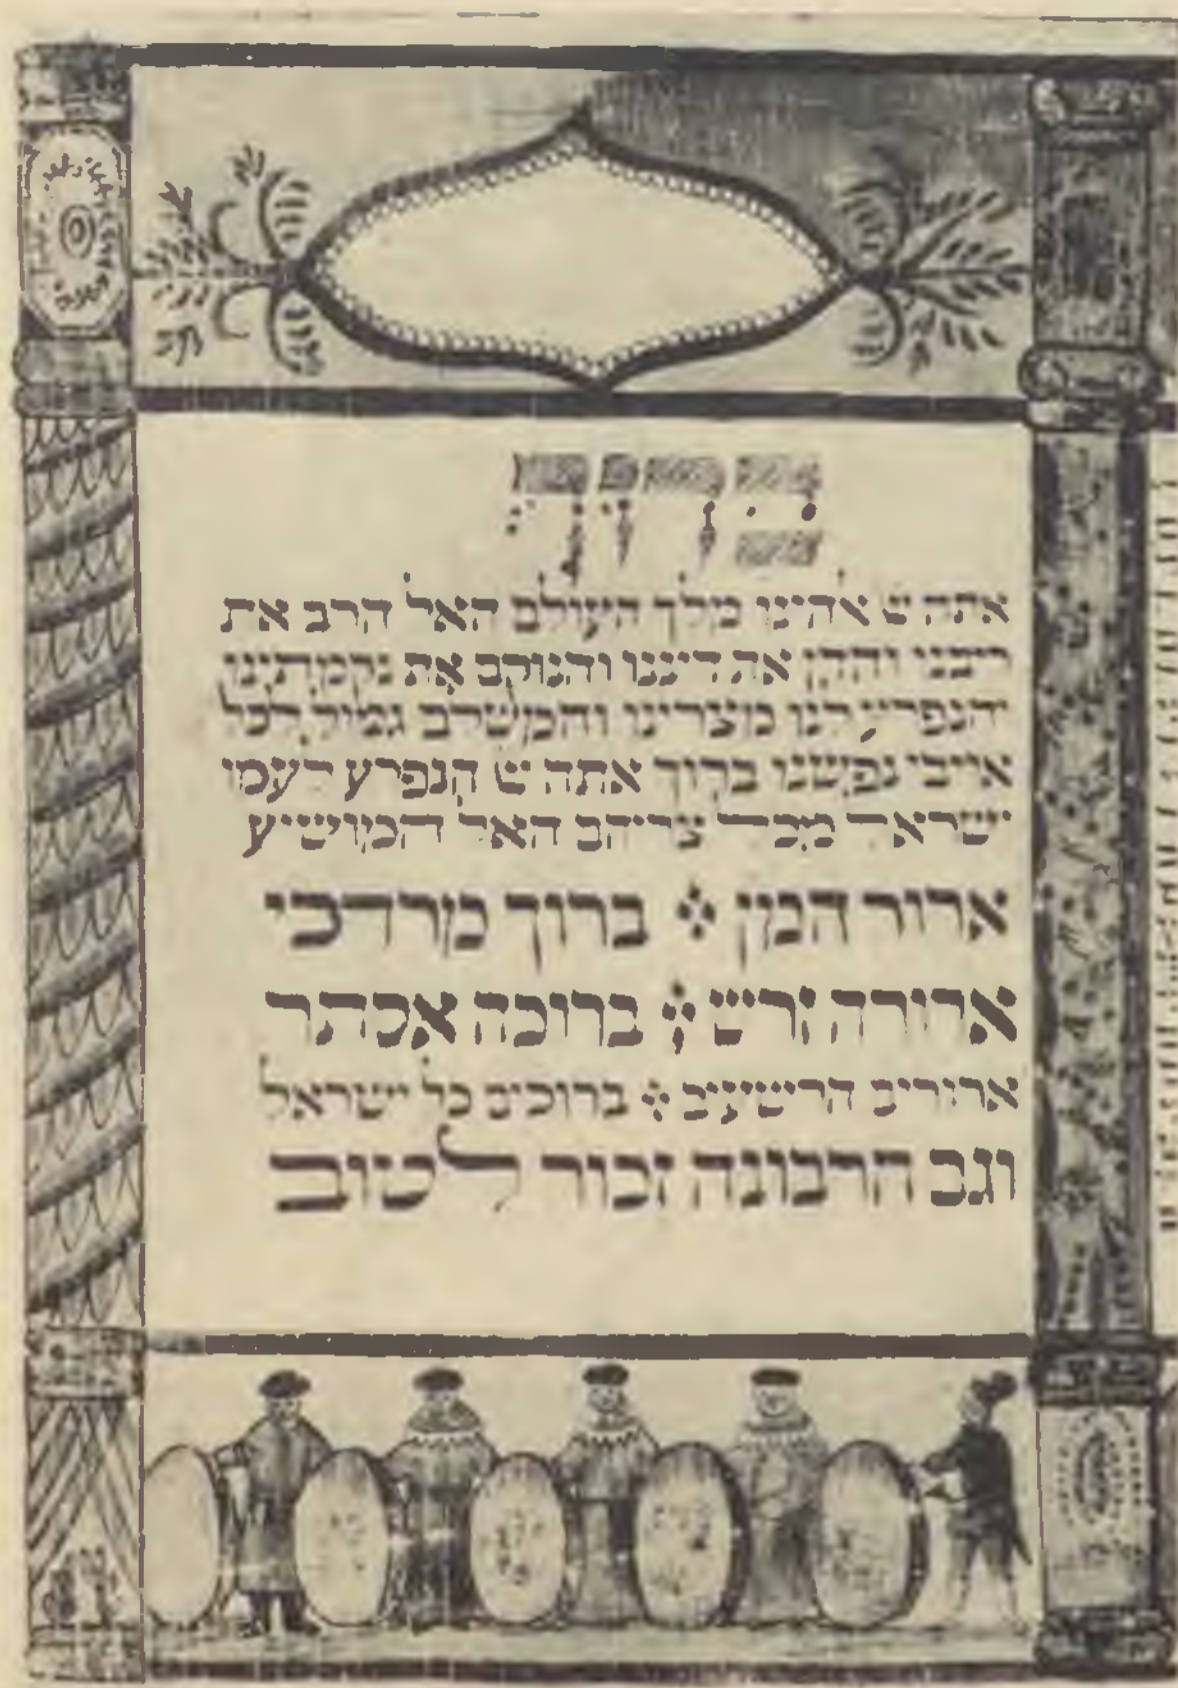 ברוך
אתה יי אלהינו מלך העולם האל הרב את
ריבנו והדן את דיננו והנוקם את נקמתינו
והנפרע לנו מצרינו והמשלם גמול לכל
אויבי נפשנו ברוך אתה יי הנפרע לעמו
ישראל מכל צריהם האל המושיע
ארור המן ברוך מרדכי
ארורה זרש ברוכה אסתר
ארורים הרשעים ברוכים כל ישראל
וגם חרבונה זכור לטוב